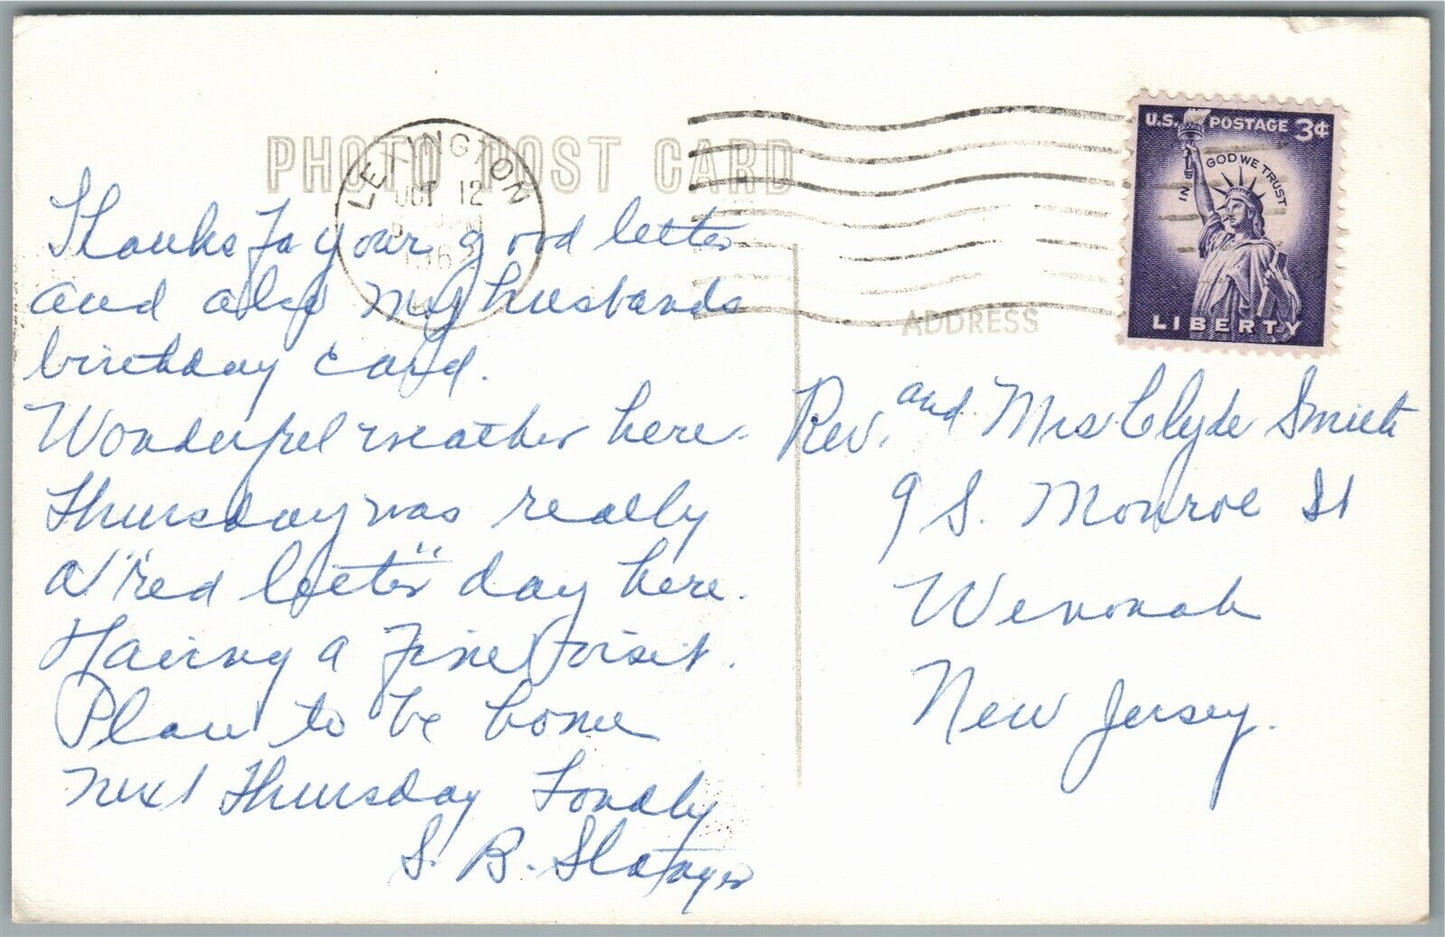 PHOTO POST CARD
LEXINGTON
OCT 12
196
U.S. POSTAGE 3¢
IN GOD WE TRUST
LIBERTY
ADDRESS
Thanks for your good letter
and also my husbands
birthday card.
Wonderful weather here.
Thursday was really
a "red letter" day here.
Having a fine visit.
Plan to be home
next Thursday Fondly
S. B.
Rev. and Mrs Clyde Smith
9 S. Monroe St
Wenonah
New Jersey.